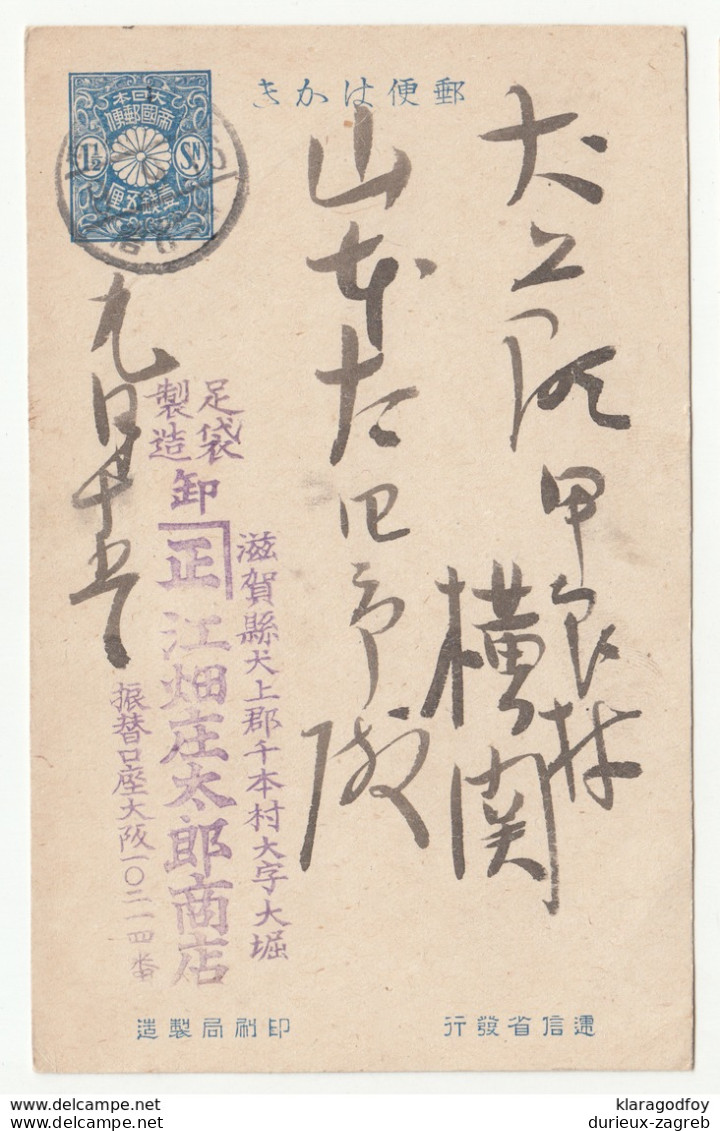 郵便はかき
大日本
帝國郵便
1½ SN
壹錢五厘
犬上郡甲良村
横関
山本太四郎殿
九月十五
足袋
製造
卸
正
江畑庄太郎商店
滋賀縣犬上郡千本村大字大堀
振替口座大阪一〇二一四番
遞信省發行
印刷局製造
klaragodfoy
durieux-zagreb